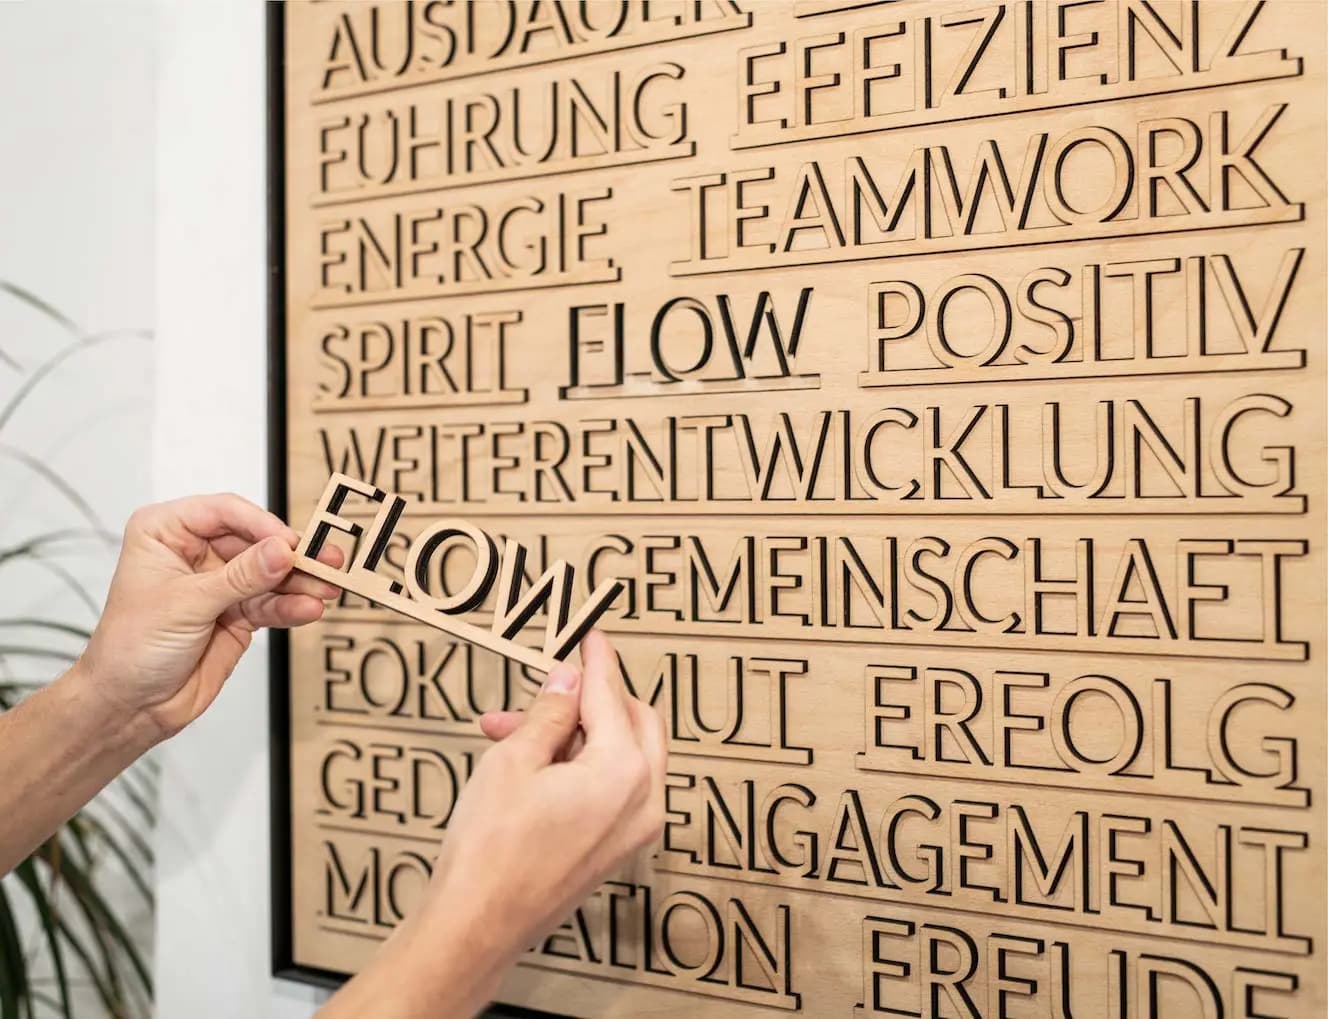 AUSDAUER
FÜHRUNG EFFIZIENZ
ENERGIE TEAMWORK
SPIRIT FLOW POSITIV
WEITERENTWICKLUNG
FLOW
GEMEINSCHAFT
FOKUS MUT ERFOLG
ENGAGEMENT
FREUDE